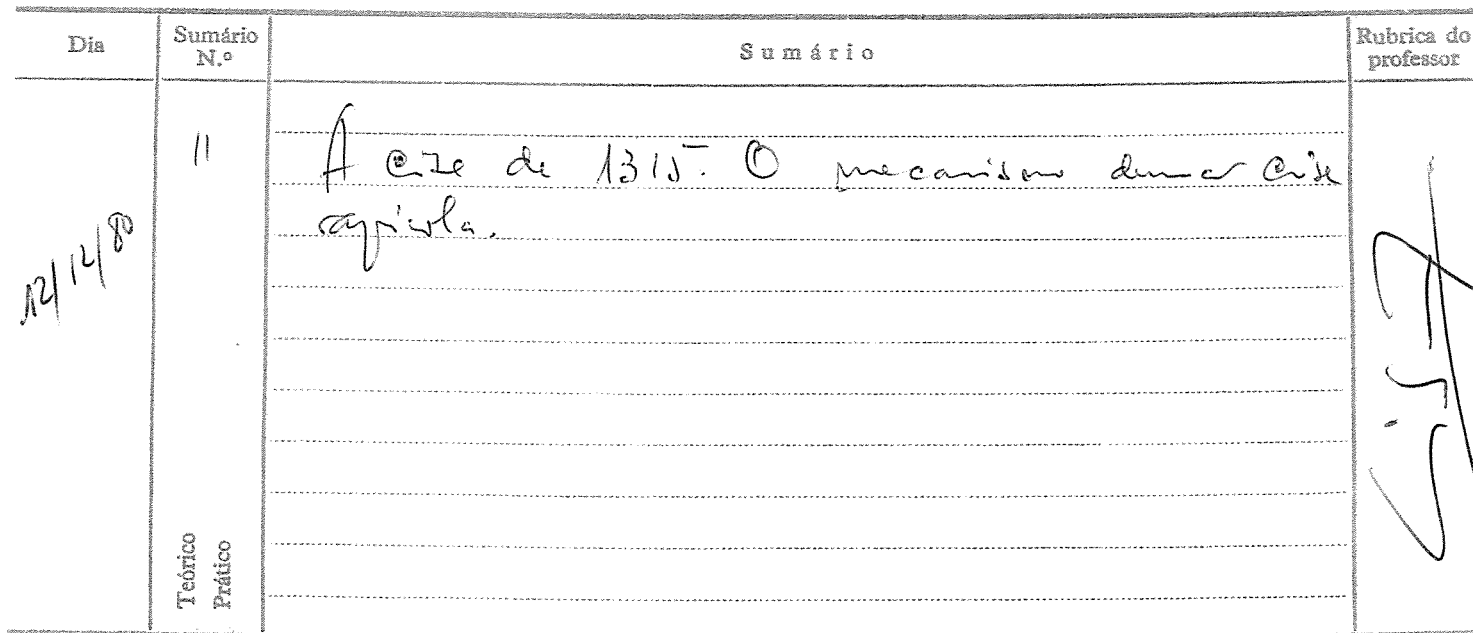 Dia
Sumário
N.º
Sumário
Rubrica do
professor
12/12/80
11
A crise de 1315. O mecanismo duma crise
agrícola.
Teórico
Prático